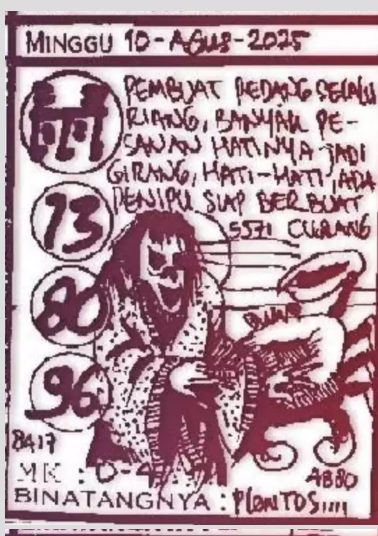 MINGGU 10-AGUS-2025
PEMBUAT PEDANG SELALU
RIANG, BANYAK PE-
SANAN HATINYA JADI
GIRANG, HATI-HATI, ADA
PENIPU SIAP BERBUAT
5571 CURANG
73
80
96
8417
MK : 0-4
AB80
BINATANGNYA : PLONTOS,,,,